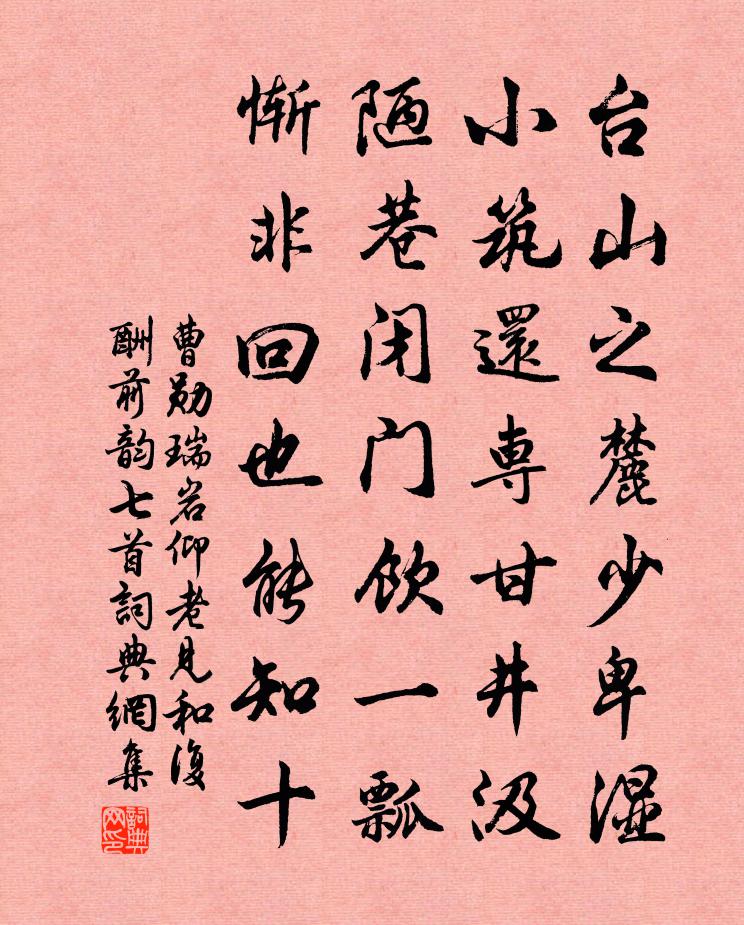 台山之麓少卑湿
小筑還専甘井汲
陋巷闭门饮一瓢
惭非回也能知十
曹勋瑞岩仰老见和復
酬前韵七首詞典網集
詞典网印